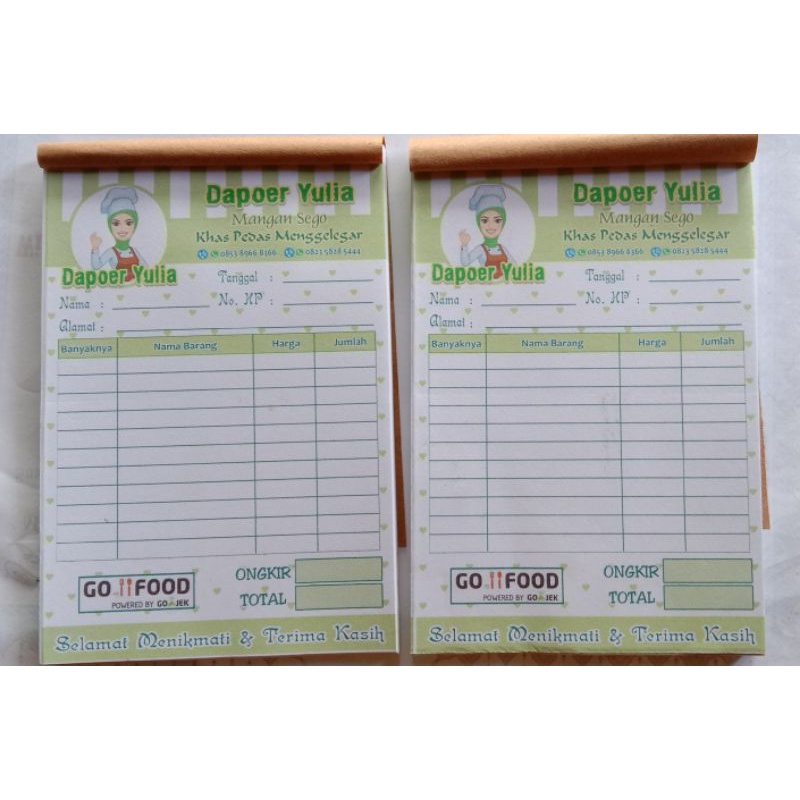 Dapoer Yulia
Mangan Sego
Khas Pedas Menggelegar
0853 8966 8166 0813 5818 5444
Dapoer Yulia
Tanggal :
Nama : No. HP :
Alamat :
Banyaknya Nama Barang Harga Jumlah
GO FOOD
POWERED BY GO JEK
ONGKIR
TOTAL
Selamat Menikmati & Terima Kasih
Dapoer Yulia
Mangan Sego
Khas Pedas Menggelegar
0853 8966 8166 0813 5818 5444
Dapoer Yulia
Tanggal :
Nama : No. HP :
Alamat :
Banyaknya Nama Barang Harga Jumlah
GO FOOD
POWERED BY GO JEK
ONGKIR
TOTAL
Selamat Menikmati & Terima Kasih